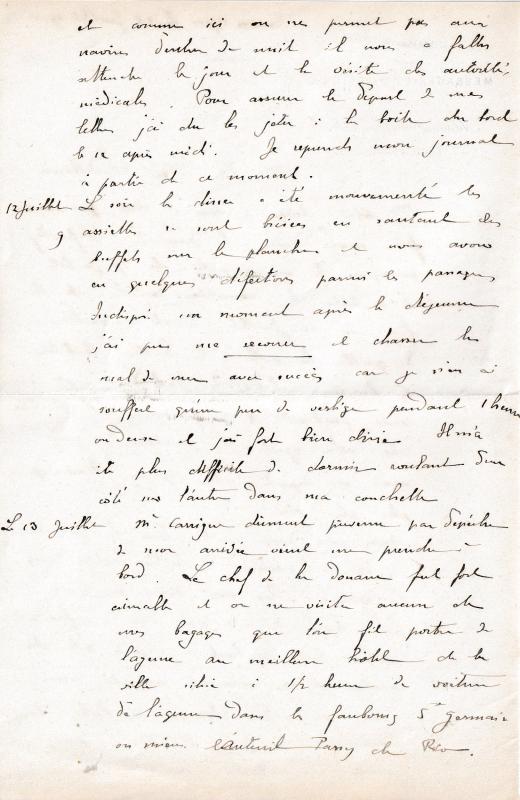 et comme ici on ne permet pas aux
navires d'entrer de nuit il nous a fallu
attendre le jour et la visite des autorités
médicales. Pour assurer le départ de mes
lettres j'ai du les jeter à la boite du bord
le 12 après midi. Je reprends mon journal
à partir de ce moment.
12 Juillet Le soir le diner a été mouvementé les
9 assiettes se sont brisées en sautant des
buffets sur le plancher et nous avons
eu quelques défections parmi les passagers
Indisposé un moment après le déjeuner
j'ai pu me secouer et chasser le
mal de mer avec succès car je n'ai
souffert qu'un peu de vertige pendant 1 heure
ou deux et j'ai fort bien diné Il m'a
été plus difficile de dormir roulant d'un
côté sur l'autre dans ma couchette
Le 13 Juillet Mr. Carrique dûment prévenu par dépêche
de mon arrivée vient me prendre à
bord. Le chef de la douane fut fort
aimable et on ne visita aucun de
mes bagages que l'on fit porter de
l'agence au meilleur hôtel de la
ville situé à 1/2 heure de voiture
de l'agence dans le faubourg St Germain
ou mieux l'Auteuil Passy de Rio.